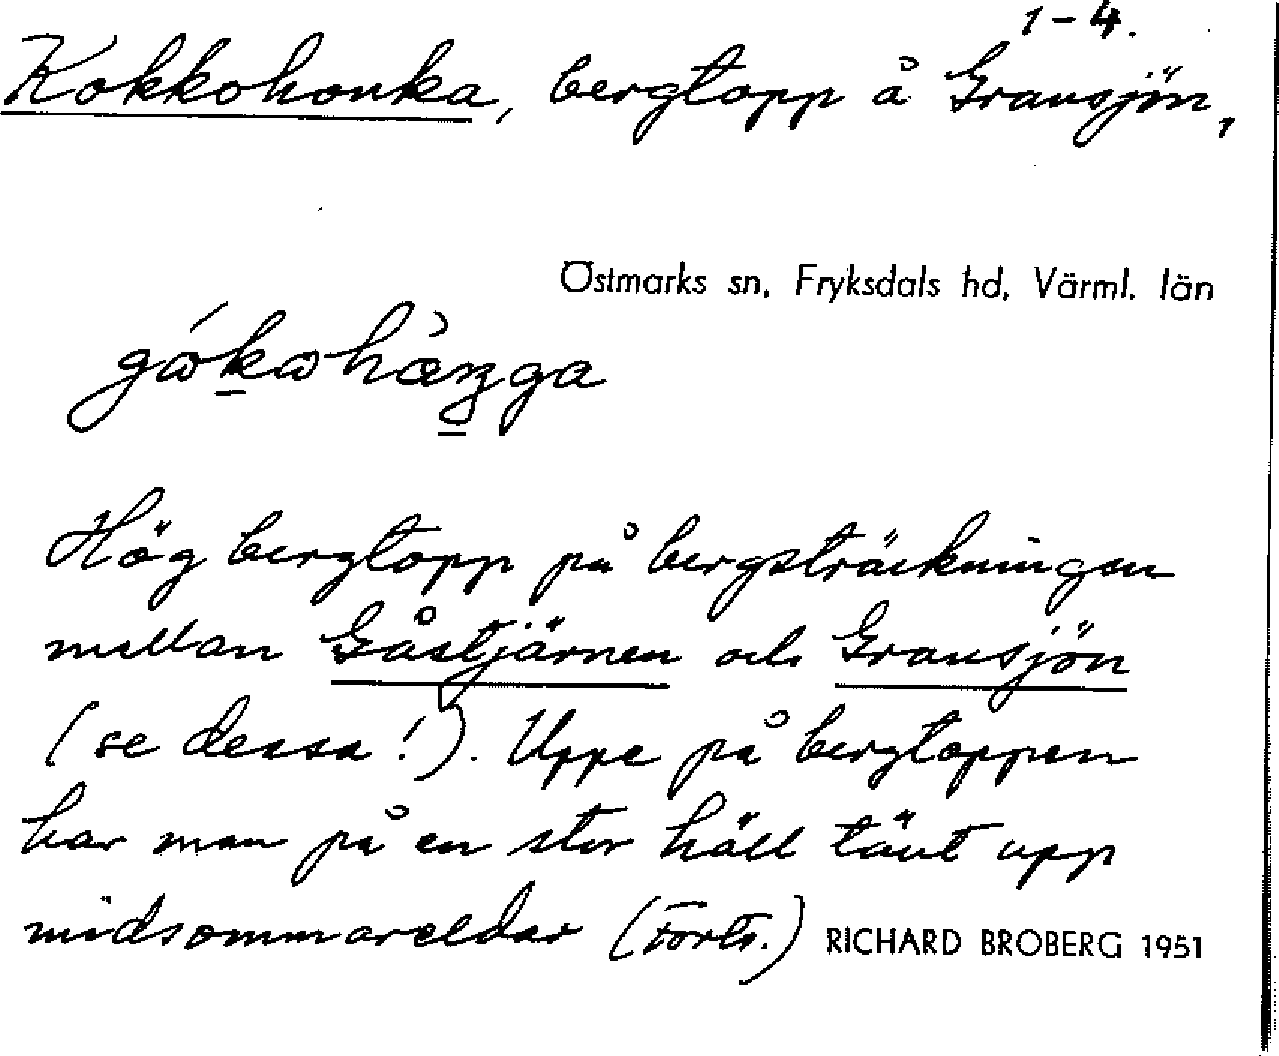 1-4.
Kokkohonka, bergtopp å Gransjön,
Östmarks sn, Fryksdals hd, Värml. län
Hög bergtopp på bergsträckningen
mellan Gåstjärnen och Gransjön
(se dessa!). Uppe på bergtoppen
har man på en stor häll tänt upp
midsommareldar (Forts.) RICHARD BROBERG 1951